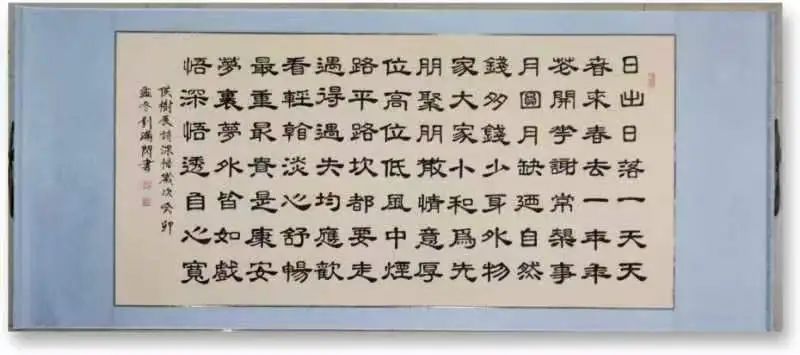 日出日落一天天
春來春去一年年
花開花謝常槼事
月圓月缺廼自然
錢多錢少身外物
家大家小和爲先
朋聚朋散情意厚
位高位低風中煙
路平路坎都要走
遇得遇失均應歡
看輕看淡心舒暢
最重最貴是康安
夢裏夢外皆如戲
悟深悟透自心寬
侯樹展詩深悟歲次癸卯
孟冬劉滿閣書